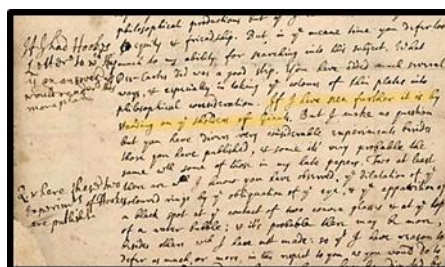 philosophical productions but of
to equity & friendship. But, in yᵉ mean time you defer too
much to my ability, for searching into this subject. What
Des-Cartes did was a good step. You have added much several
ways, & especially in taking yᵉ colours of thin plates into
philosophical consideration. If I have seen further it is by
standing on yᵉ sholders of Giants. But I make no question
but you have divers very considerable experiments besides
those you have published, & some it's very probable the
same with some of those in my late papers. Two at least
there are I know you have observed, yᵉ dilatation of yᵉ
coloured rings by yᵉ obliquation of yᵉ eye, & yᵉ apparition of
a black spot at yᵉ contact of two convex glasses & at yᵉ top
of a water bubble; & it's probable there may be more,
besides others wᶜʰ I have not made: so yᵗ I have reason to
defer as much, or more, in this respect to you, as you would do to
I had Hooks
Letter to wᶜʰ this
is an answer
Qu. where these two
Experiments of Hooks
are published